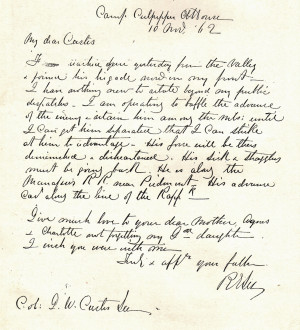 Camp Culpepper Ct House
10 Nov. '62
My dear Custis
reached here yesterday from the Valley
& joined his brigade now in my front
I have nothing new to relate beyond my public
dispatches - I am operating to baffle the advance
of the enemy & retain him among the mts: until
I can get him separated that I can strike
at him to advantage - His force will be thus
diminished & disheartened. His sick & stragglers
must be going back. He is along the
Manassas R R near Piedmont - His advance
Cav along the line of the Rapp R
Give much love to your dear Mother, Agnes
& Charlotte not forgetting my daughter
I wish you were with me
Truly & affly your father
R E Lee
Col: G. W. Custis Lee